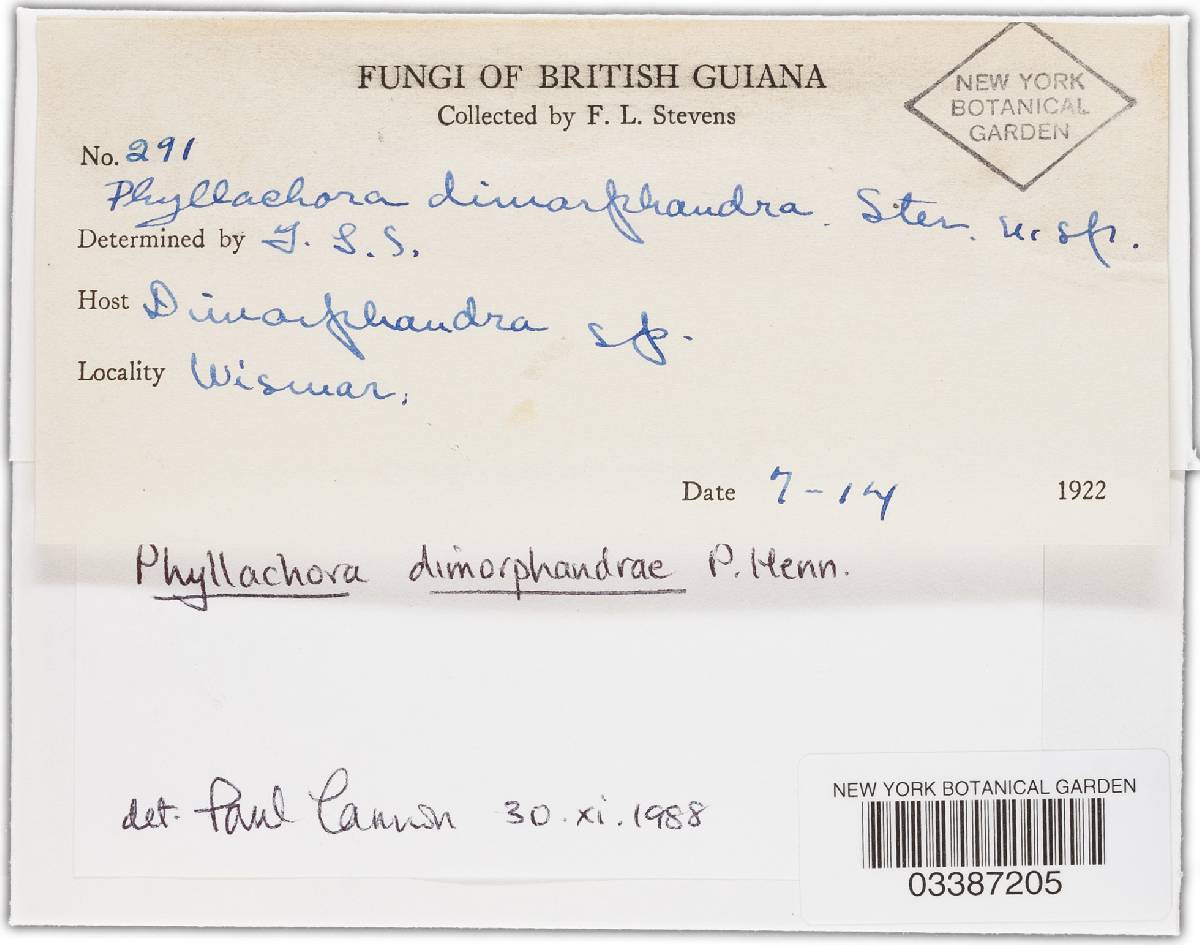 FUNGI OF BRITISH GUIANA
Collected by F. L. Stevens
NEW YORK
BOTANICAL
GARDEN
No. 291
Phyllachora dimorphandra. Stev. n. sp.
Determined by F. L. S.
Host Dimorphandra sp.
Locality Wismar.
Date 7-14 1922
Phyllachora dimorphandrae P. Henn.
det. Paul Cannon 30.xi.1988
NEW YORK BOTANICAL GARDEN
03387205